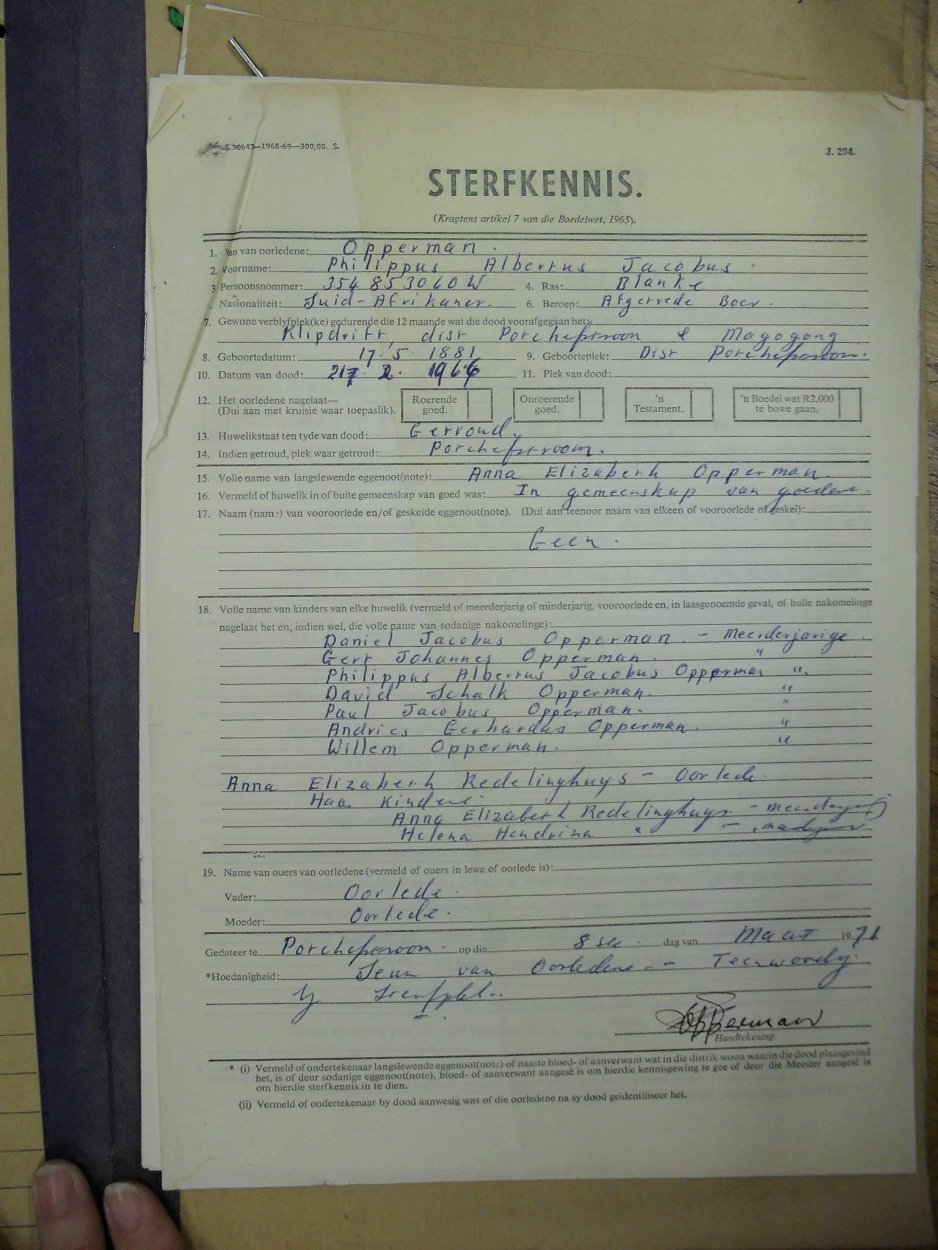 S.30643—1968-69—300,00. S.
J. 294.
STERFKENNIS.
(Kragtens artikel 7 van die Boedelwet, 1965).
1. Van van oorledene: Opperman.
2. Voorname: Philippus Albertus Jacobus.
3. Persoonsnommer: 354 853040 W 4. Ras: Blanke
Nasionaliteit: Suid-Afrikaner. 6. Beroep: Afgetrede Boer.
7. Gewone verblyfplek(ke) gedurende die 12 maande wat die dood voorafgegaan het:
Klipdrift, distr Potchefstroom & Magogong
8. Geboortedatum: 17. 5. 1881 9. Geboorteplek: Distr Potchefstroom.
10. Datum van dood: 2. 1966 11. Plek van dood:
12. Het oorledene nagelaat—
(Dui aan met kruisie waar toepaslik).
Roerende goed.
Onroerende goed.
'n Testament.
'n Boedel wat R2,000 te bowe gaan.
13. Huwelikstaat ten tyde van dood: Getroud.
14. Indien getroud, plek waar getroud: Potchefstroom.
15. Volle name van langslewende eggenoot(note): Anna Elizabeth Opperman.
16. Vermeld of huwelik in of buite gemeenskap van goed was: In gemeenskap van goedere.
17. Naam (name) van vooroorlede en/of geskeide eggenoot(note). (Dui aan teenoor naam van elkeen of vooroorlede of geskei):
Geen.
18. Volle name van kinders van elke huwelik (vermeld of meerderjarig of minderjarig, vooroorlede en, in laasgenoemde geval, of hulle nakomelinge
nagelaat het en, indien wel, die volle name van sodanige nakomelinge):
Daniel Jacobus Opperman — Meerderjarige
Gert Johannes Opperman. "
Philippus Albertus Jacobus Opperman ".
David Schalk Opperman. "
Paul Jacobus Opperman. "
Andries Gerhardus Opperman. "
Willem Opperman. "
Anna Elizabeth Redelinghuys — Oorlede.
Haar Kinders
Anna Elizabeth Redelinghuys — meerderjarig
Helena Hendrina " —
19. Name van ouers van oorledene (vermeld of ouers in lewe of oorlede is):
Vader: Oorlede.
Moeder: Oorlede.
Gedateer te Potchefstroom op die 8ste dag van Maart 1971
*Hoedanigheid: Seun van Oorledene — Teenwoordig
by Sterfplek.
Opperman
Handtekening.
* (i) Vermeld of ondertekenaar langslewende eggenoot(note) of naaste bloed- of aanverwant wat in die distrik woon waarin die dood plaasgevind
het, is of deur sodanige eggenoot(note), bloed- of aanverwant aangesê is om hierdie kennisgewing te gee of deur die Meester aangesê is
om hierdie sterfkennis in te dien.
(ii) Vermeld of ondertekenaar by dood aanwesig was of die oorledene na sy dood geïdentifiseer het.